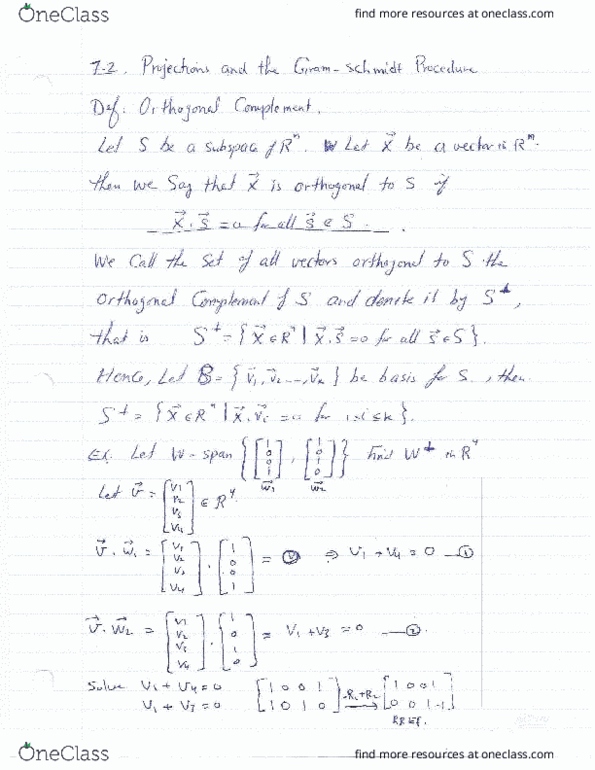 OneClass find more resources at oneclass.com
7-2. Projections and the Gram-Schmidt Procedure
Def: Orthogonal Complement.
Let S be a subspace of Rⁿ. Let x⃗ be a vector in Rⁿ.
then we Say that x⃗ is orthogonal to S if
x⃗ · s⃗ = 0 for all s⃗ ∈ S.
We Call the Set of all vectors orthogonal to S the
Orthogonal Complement of S and denote it by S⊥,
that is S⊥ = { x⃗ ∈ Rⁿ | x⃗ · s⃗ = 0 for all s⃗ ∈ S }.
Hence, Let B = { v⃗₁, v⃗₂ ..., v⃗ₖ } be basis for S, then
S⊥ = { x⃗ ∈ Rⁿ | x⃗ · v⃗ᵢ = 0 for 1≤i≤k }.
Ex. Let W = span { [1 0 0 1], [1 0 1 0] } find W⊥ in R⁴
w⃗₁ w⃗₂
Let v⃗ = [v₁ v₂ v₃ v₄] ∈ R⁴
v⃗ · w⃗₁ = [v₁ v₂ v₃ v₄] · [1 0 0 1] = 0 ⇒ v₁ + v₄ = 0 — ①
v⃗ · w⃗₂ = [v₁ v₂ v₃ v₄] · [1 0 1 0] = v₁ + v₃ = 0 — ②.
Solve v₁ + v₄ = 0 [1 0 0 1 -R₁+R₂ [1 0 0 1
v₁ + v₃ = 0 1 0 1 0] → 0 0 1 -1]
RREF.
OneClass find more resources at oneclass.com